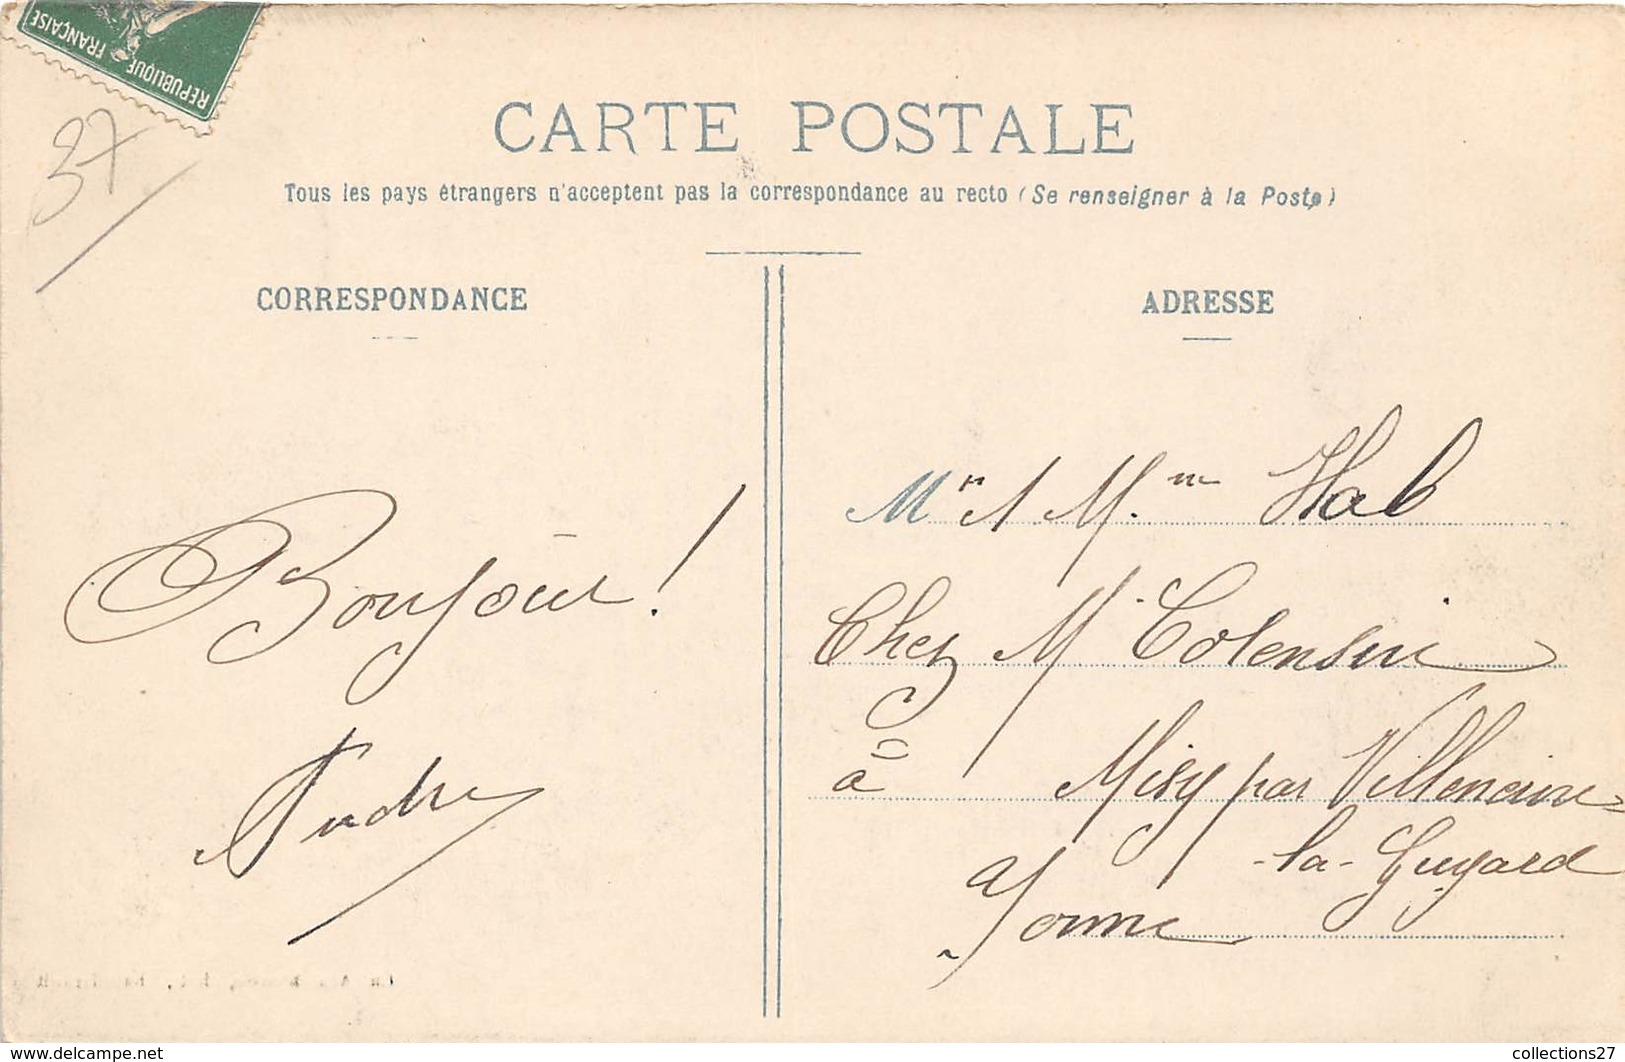 REPUBLIQUE FRANÇAISE
37
CARTE POSTALE
Tous les pays étrangers n'acceptent pas la correspondance au recto (Se renseigner à la Poste)
CORRESPONDANCE
Bonjour!
André
ADRESSE
Mr et M.me Hab
Chez Mr Colensin
à Misy par Villeneuve
-la-Guyard
Yonne
www.delcampe.net
collections27